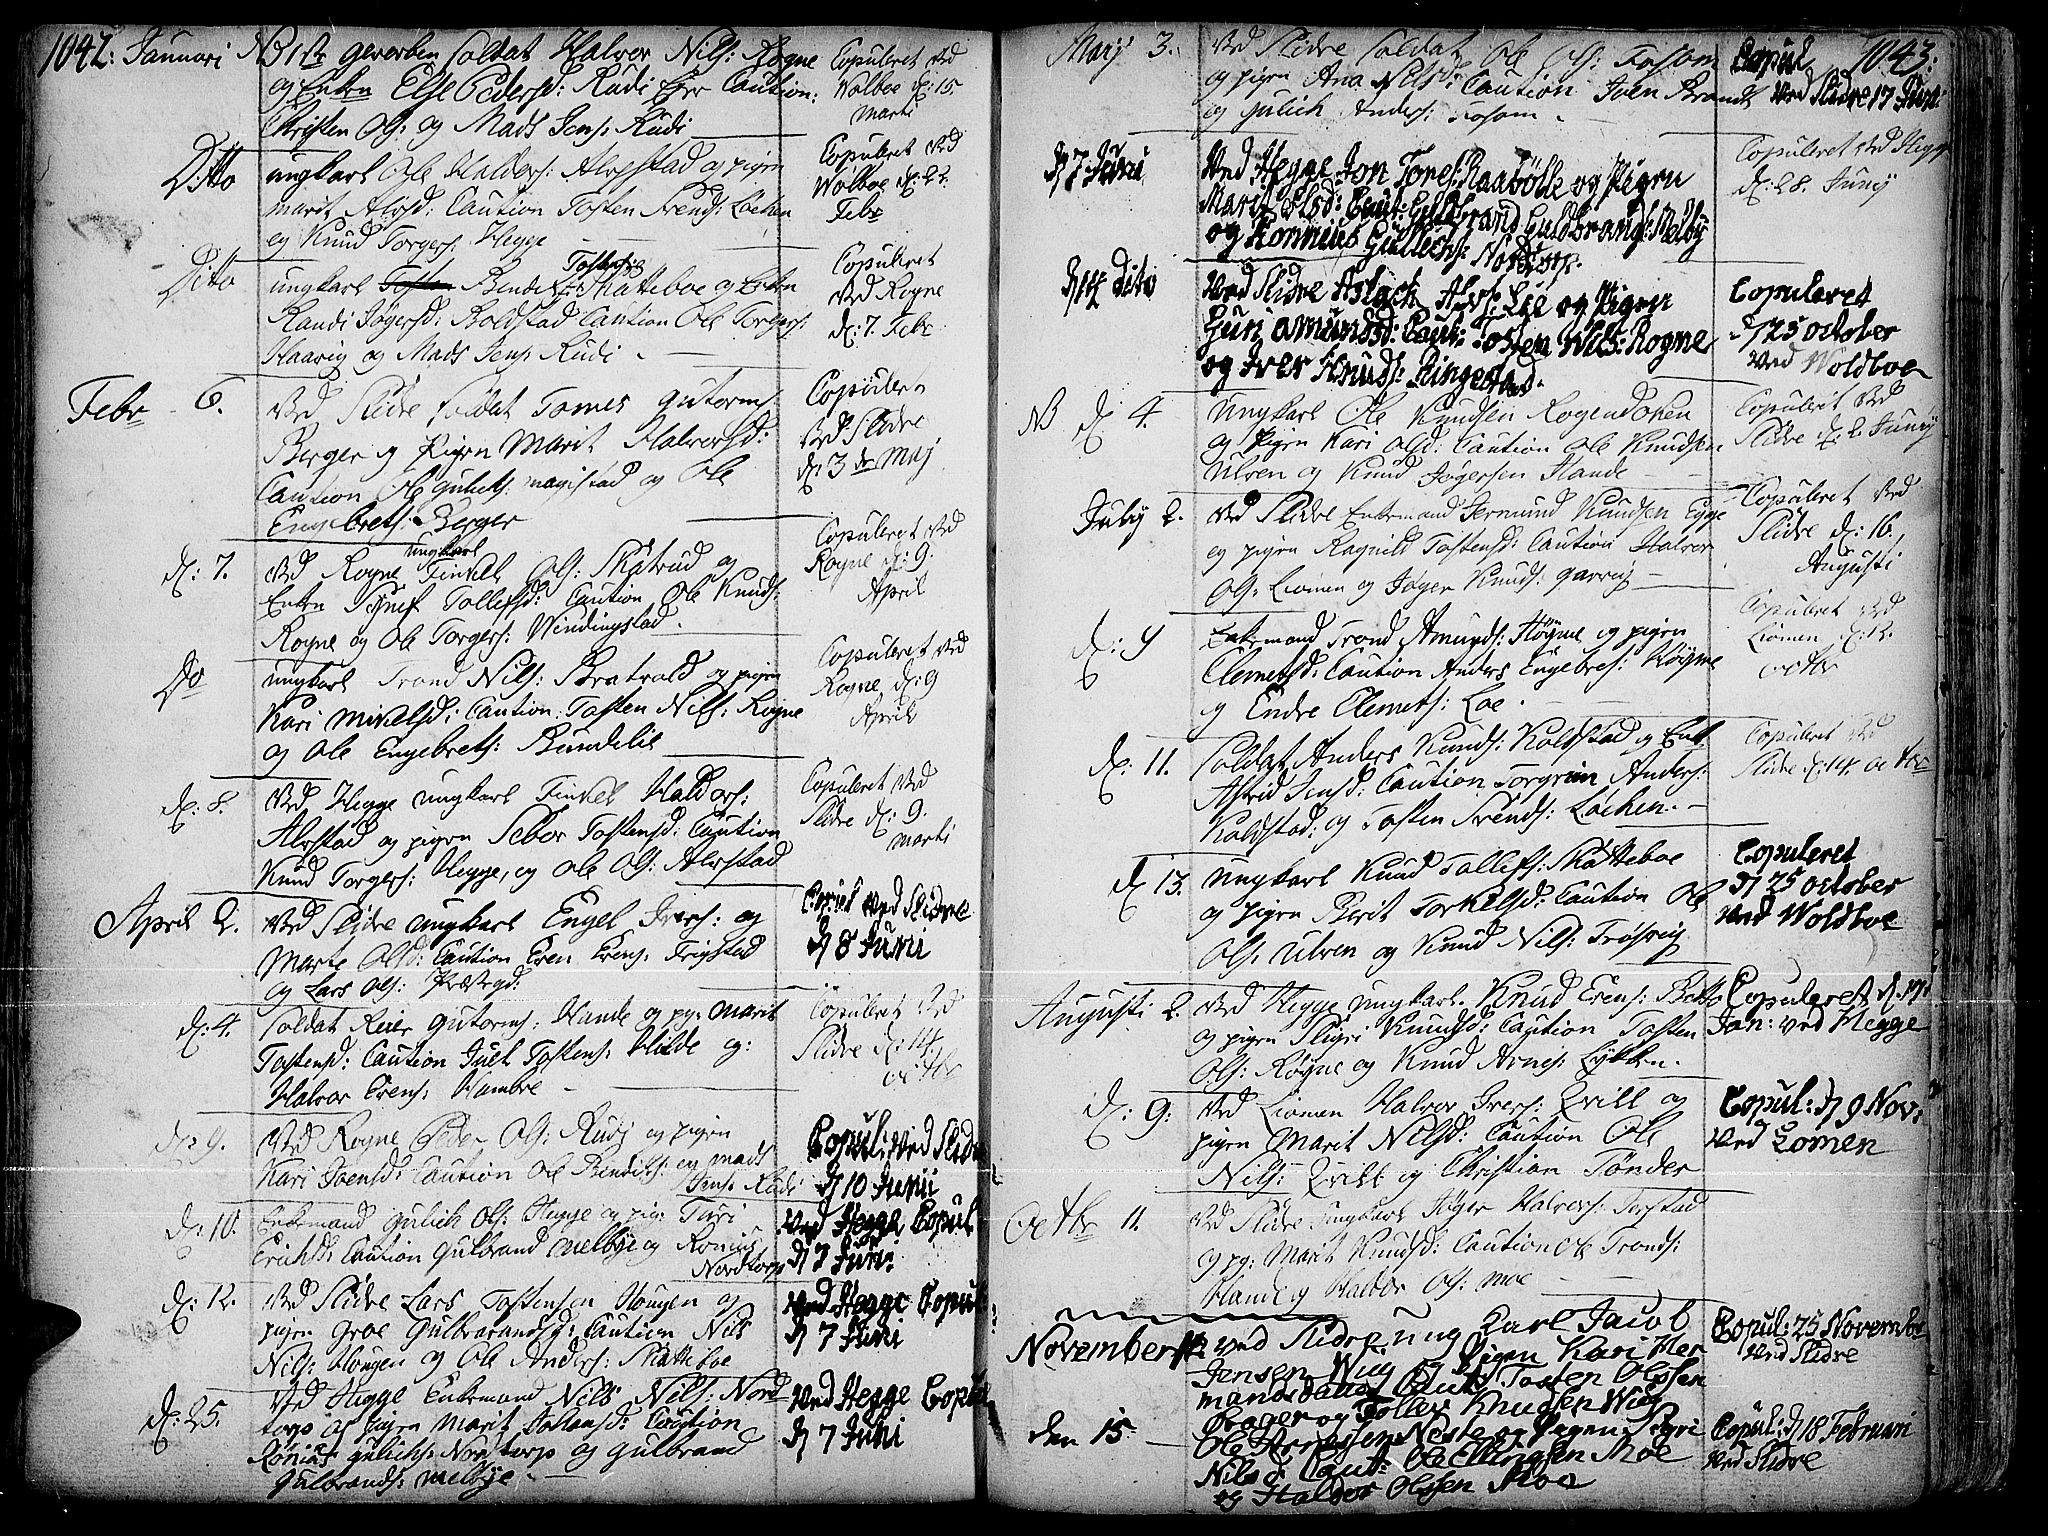 1042. Januari NB 1ste geworben Soldat Halvor Nils: Rogne
og Enken Else Peders d: Rudi Caution:
Christen Ols: og Mads Jens: Rudi
Copuleret ved
Wolboe d: 15.
Marti
Ditto ungkarl Ole Haldors: Alvstad og pigen
Marit Alvsd: Caution Tosten Svends: Lochen
og Knud Torgers: Hegge
Copuleret ved
Wolboe d: 22.
Febr
Ditto ungkarl Bendix Tostens: Skatteboe og Enken
Randi Jøgersd: Boldstad Caution Ole Torgers:
Haarig og Mads Jens: Rudi
Copuleret
ved Rogne
d: 7. Febr
Febr 6. ved Slidre Soldat Tomes Gutorms:
Berger og Pigen Marit Halvorsd:
Caution Ole Gulichs: Magistad og Ole
Engebrets: Berger
Copuleret
ved Slidre
d: 3de Maj
d: 7. ved Rogne ungkarl Finkel Ols: Skatrud og
Enken Tollefsd: Caution Ole Knuds:
Rogne og Ole Torgers: Windingstad
Copuleret ved
Rogne d: 9.
April
Do ungkarl Trond Nils: Bratvold og pigen
Kari Mikelsd: Caution: Tosten Nils: Rogne
og Ole Engebrets: Bundelie
Copuleret ved
Rogne d: 9
April
d: 8. ved Hegge ungkarl Finkel Haldors:
Alvstad og pigen Sebor Tostensd: Caution
Knud Torgers: Hegge, og Ole Ols: Alvstad
Copuleret ved
Slidre d: 9.
Marti
April 2. ved Slidre ungkarl Engel Ivers: og
Marte Olsd: Caution Even Evens: Trigstad
og Lars Ols: Præstgd:
Copul ved Slidre
d 8 Juni
d: 4. Soldat Reier Gutorms: Hande og pg: Marit
Tostensd: Caution Juel Tostens: Hilde og:
Halvor Evens: Hambre
Copuleret ved
Slidre d: 14.
octbr
d: 9. ved Rogne Peder Ols: Rudj og pigen
Kari Joensd: Caution Ole Bendiks: og Mads
Jens: Rudi
Copul: ved Slidre
d 10 Junii
d: 10. Enkemand Gulich Ols: Hegge og pig: Turi
Erichsd: Caution Gulbrand Melbye og Ronius
Nordtorp
ved Hegge Copul
d 7 Juni
d: 12. ved Slidre Lars Tostensen Hougen og
pigen Groe Gulbrandsd: Caution Nils
Nils: Hougen og Ole Anders: Skatteboe
ved Hegge Copul
d 7 Juni
d: 25. ved Hegge Enkemand Nils Nils: Nord
torp og pigen Marit Johansd: Caution
Ronius Gulichs: Nordtorp og Gulbrand
Gulbrands: Melbye
ved Hegge Copul
d 7 Juni
1043.
Maji 3. ved Slidre Soldat Ole Ols: Fosom
og pigen Ana Nilsd: Caution Iven Brandt
og Gulich Anders: Fosom
Copul
ved Slidre 17 Juni
d 7 Juni ved Hegge Jon Jons: Raabölle og Pigen
Marit Olsd: Caut: Guldbrand Guldbrands: Melby
og Ronnius Gullechs: Nordtorp.
Copuleret ved Hegge
d: 28. Junij
d 14 dito ved Slidre Aslach Alvs: Lie og Pigen
Guri Amundsd: Caut: Tosten Nils: Rogne
og Iver Knuds: Ringestad.
Copuleret
d 25 october
ved Woldboe
NB d 4. Ungkarl Ole Knudsen Rogendoken
og Pigen Kari Olsd: Caution Ole Knudsen
Ulven og Knud Jøgersen Hande
Copulerit ved
Slidre d: 2. Junij
Julij 2. ved Slidre Enkemand Jermund Knudsen Egge
og pigen Ragnild Tostensd: Caution Halvor
Ols: Liomen og Jøger Knuds: Qarvig
Copuleret ved
Slidre d: 16.
Augusti
d: 9 Enkemand Trond Amunds: Høyne og pigen
Clemetsd: Caution Anders Engebres: Høyne
og Endre Clemets: Loe.
Copuleret ved
Liomen d: 12.
octbr
d: 11. Soldat Anders Knuds: Koldstad og Enk:
Astrid Jensd: Caution Torgrim Anders:
Koldstad: og Tosten Svends: Løchen.
Copuleret ved
Slidre d: 14. octbr
d 13. ungkarl Knud Tollefs: Skatteboe
og pigen Berit Torkelsd: Caution Ole
Ols: Ulven og Knud Nils: Trøsvig
Copuleret
d 25 october
ved Woldboe
Augusti 2. ved Hegge ungkarl Knud Evens: Belto
og pigen Sligri Knudsd: Caution Tosten
Ols: Røyne og Knud Arnes: Lykken.
Copuleret d. 17.
Jan: ved Hegge
d: 9. ved Liomen Halvor Ivers: Qvill og
pigen Marit Nilsd: Caution Ole
Nils: Qvill og Christian Tønder
Copul: d 9 Nov:
ved Lomen
Octbr 11. ved Slidre Ungkarl Jøger Halvors: Torstad
og pg: Marit Knudsd: Caution Ole Tronds:
Hande og Haldor Ols: Moe
November ved Slidre ung Karl Jacob
Jensen Wiig og Pigen Kari Her
mandsdatter Caut: Tosten Olssen
Prager og Toller Knudsen Wiig
Copul: 25 November
ved Slidre
den 15. Ole Arnessen Neste og Pigen Sigri
Nilsd: Caut: Ole Ellingsen Moe
og Haldor Olssen Moe
Copul: d 18 Februari
ved Slidre